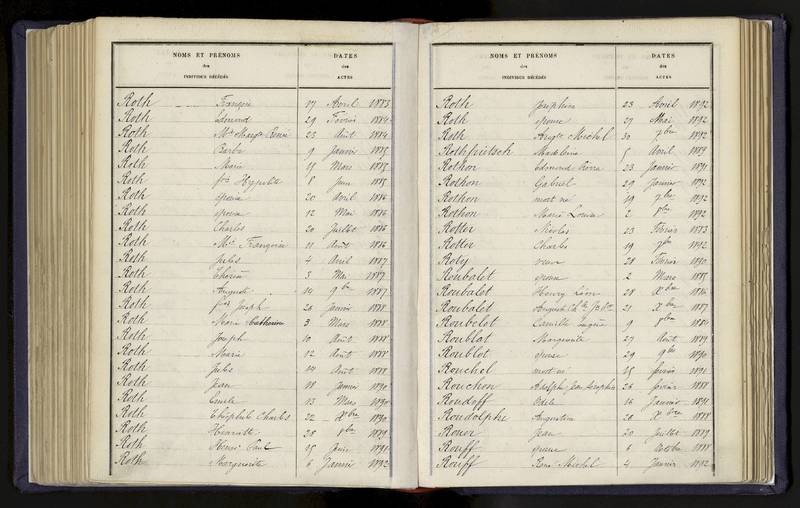 NOMS ET PRÉNOMS
des
INDIVIDUS DÉCÉDÉS
DATES
des
ACTES
Roth 17 Avril 1883
Roth Edmond 29 Février 1884
Roth 23 Août 1884
Roth 9 Janvier 1885
Roth Marie 15 Mars 1885
Roth Hyppolite 8 Juin 1885
Roth 20 Avril 1886
Roth 12 Mai 1886
Roth Charles 20 Juillet 1886
Roth Françoise 11 Août 1886
Roth Jules 4 Avril 1887
Roth 3 Mai 1887
Roth Auguste 14 9bre 1887
Roth Joseph 26 Janvier 1888
Roth Marie Catherine 3 Mars 1888
Roth Joseph 10 Août 1888
Roth Marie 12 Août 1888
Roth Jules 14 Août 1888
Roth Jean 18 Janvier 1890
Roth Emile 13 Mars 1890
Roth Théophile Charles 22 Xbre 1890
Roth Henriette
Roth Henri Paul 1891
Roth Marguerite 6 Janvier 1892
NOMS ET PRÉNOMS
des
INDIVIDUS DÉCÉDÉS
DATES
des
ACTES
Roth Joséphine 23 Avril 1892
Roth épouse 27 Mai 1892
Roth Michel 30 7bre 1892
Rothfritsch Madeleine 5 Avril 1889
Rothon Edmond Pierre 23 Janvier 1891
Rothon Gabriel 29 Janvier 1892
Rothon mort né 19 1892
Rothon Marie Louise 2 1892
Rotter Nicolas 23 Février 1883
Rotter Charles 19 1892
Roty veuve 28 Février 1890
Roubalet épouse 2 Mars 1885
Roubalot Henry Léon 28 Xbre 1886
Roubalot 21 Xbre 1887
Roubelot Camille Eugène 9
Roublot Marguerite 27 Août 1889
Roublot épouse 29 9bre 1890
Rouchel mort né 15 février 1891
Rouchon 26 février 1888
Roudoff Odile 16 Janvier 1891
Roudolphe Augustine 28 Xbre 1888
Rouer Jean 20 Juillet 1889
Rouff épouse 6 Octobre 1888
Rouff René Michel 4 Janvier 1892